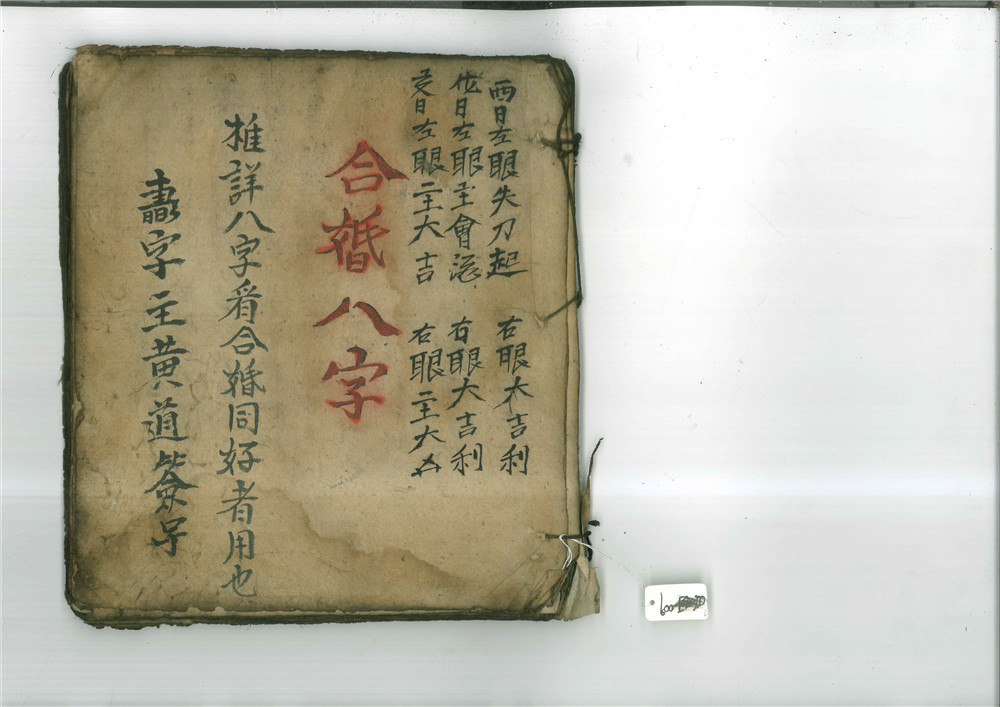 酉日左眼失刀起 右眼大吉利
日左眼主會 右眼大吉利
日左眼主大吉 右眼主大
合婚八字
推詳八字看合婚同好者用也
字主黄道簽
600